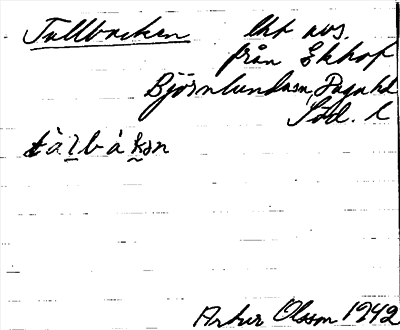 Tallbacken lht avs.
från Ekhof
Björnlundasn, Daga hd
Söd. l
tàlbákən
Artur Olsson 1942